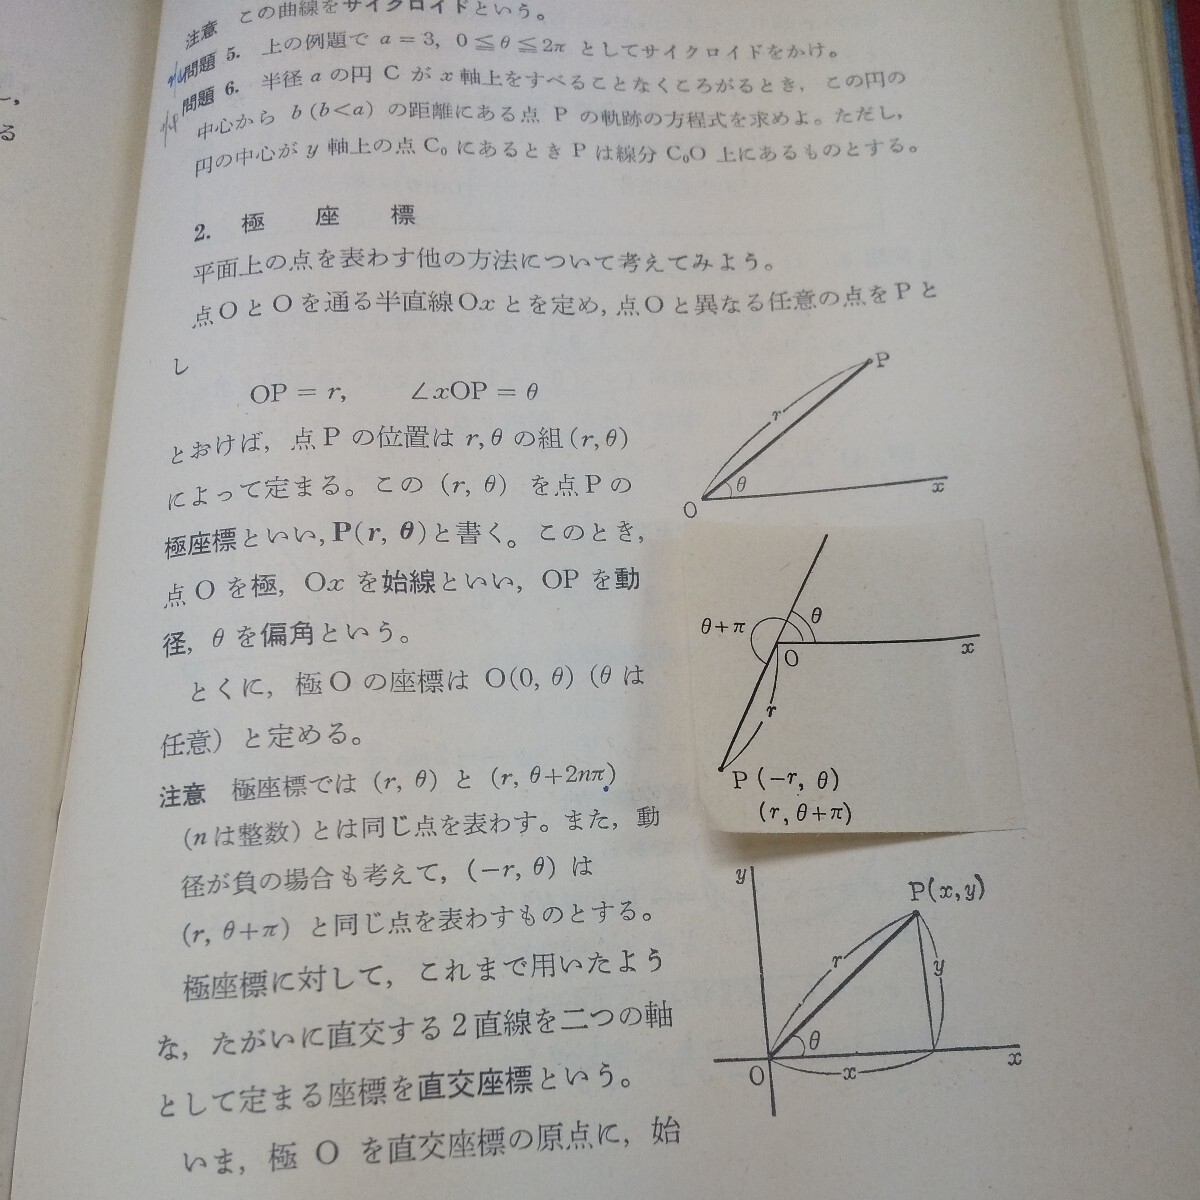 注意 この曲線をサイクロイドという。
問題 5. 上の例題で a=3, 0≦θ≦2π としてサイクロイドをかけ。
問題 6. 半径 a の円 C が x 軸上をすべることなくころがるとき, この円の
中心から b (b<a) の距離にある点 P の軌跡の方程式を求めよ。ただし,
円の中心が y 軸上の点 C₀ にあるとき P は線分 C₀O 上にあるものとする。
2. 極座標
平面上の点を表わす他の方法について考えてみよう。
点OとOを通る半直線Oxとを定め, 点Oと異なる任意の点をPと
し
OP = r, ∠xOP = θ
とおけば, 点P の位置は r, θ の組 (r, θ)
によって定まる。この (r, θ) を点Pの
極座標といい, P(r, θ) と書く。このとき,
点 O を極, Ox を始線といい, OP を動
径, θ を偏角という。
とくに, 極O の座標は O(0, θ) (θ は
任意) と定める。
注意 極座標では (r, θ) と (r, θ+2nπ)
(n は整数) とは同じ点を表わす。また, 動
径が負の場合も考えて, (−r, θ) は
(r, θ+π) と同じ点を表わすものとする。
極座標に対して, これまで用いたよう
な, たがいに直交する2直線を二つの軸
として定まる座標を直交座標という。
いま, 極 O を直交座標の原点に, 始
P
r
θ
O
x
θ+π
θ
O
x
r
P (−r, θ)
(r, θ+π)
y
P(x, y)
r
y
θ
O
x
x
る